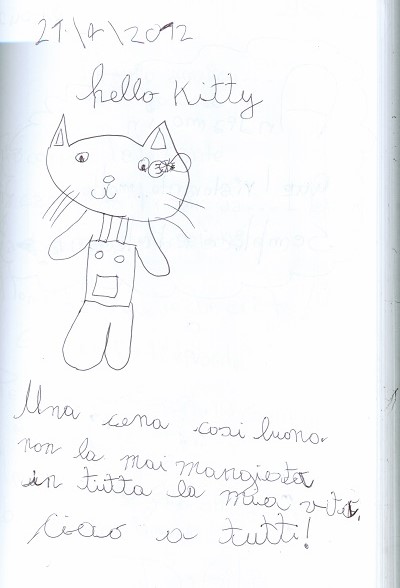 21\4\2012
hello Kitty
Una cena cosi buona
non la mai mangiata
in tutta la mia vita.
Ciao a tutti!